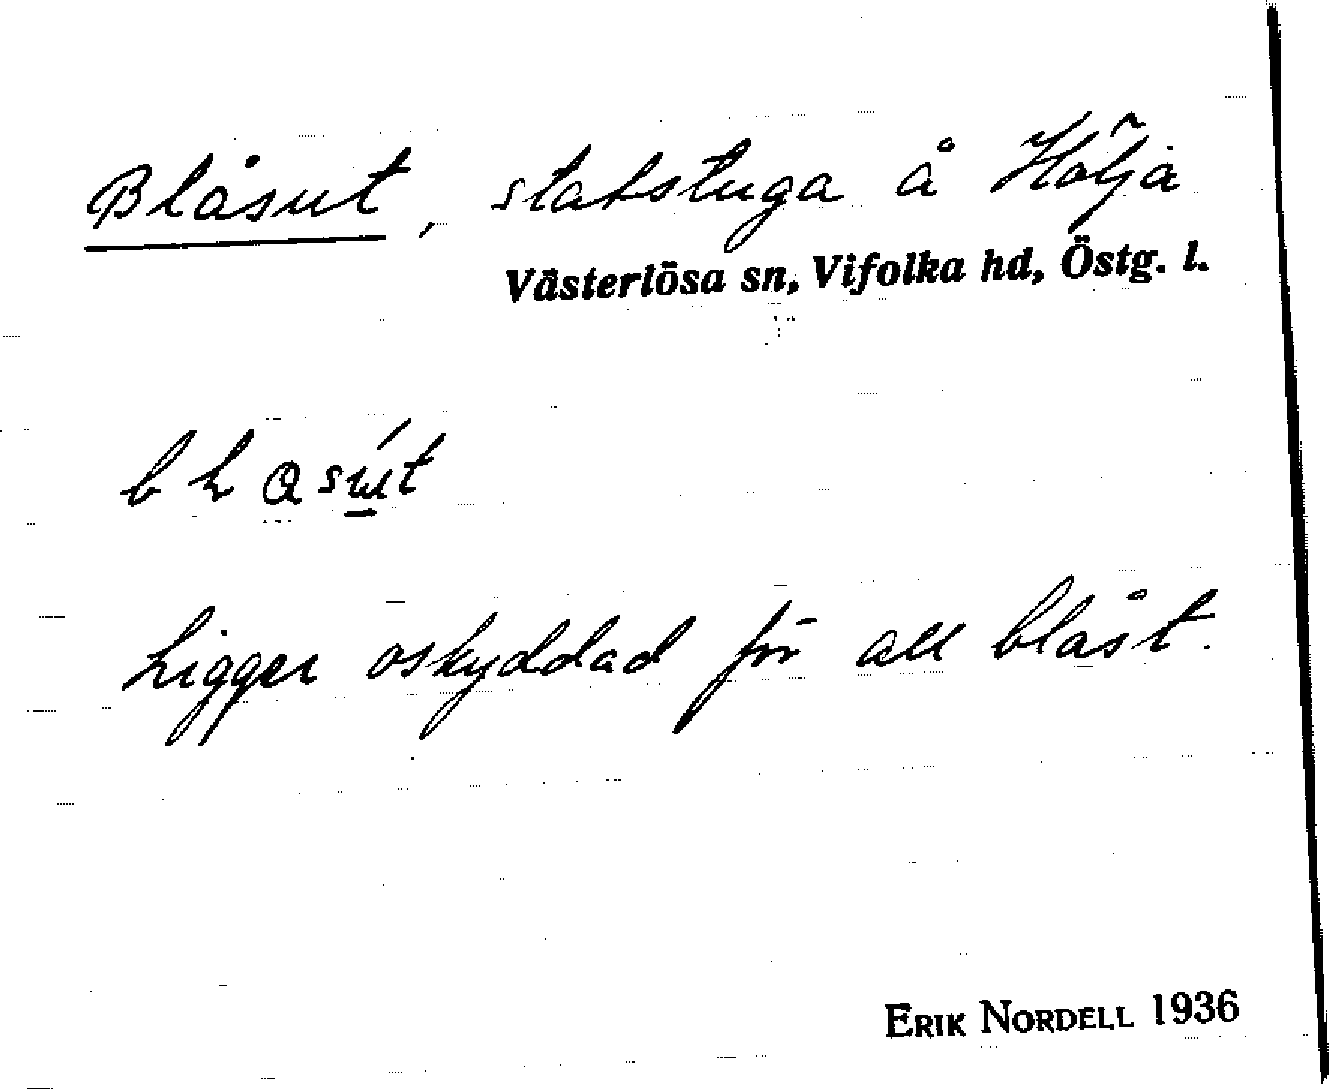 Blåsut, statstuga å Hölja
Västerlösa sn, Vifolka hd, Östg. l.
Ligger oskyddad för all blåst.
ERIK NORDELL 1936